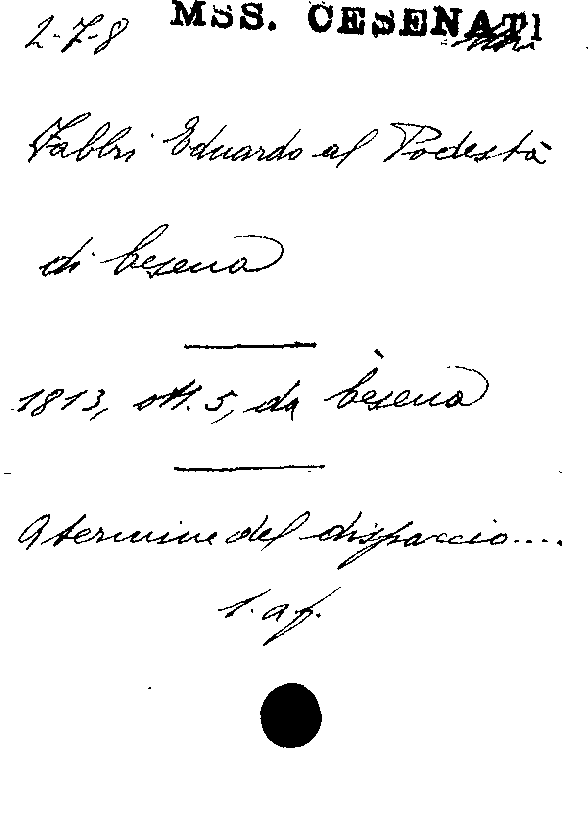 2-7-8 MSS. CESENATI
Fabbri Eduardo al Podestà
di Cesena
1813, ott. 5, da Cesena
A termine del dispaccio....
l. a f.